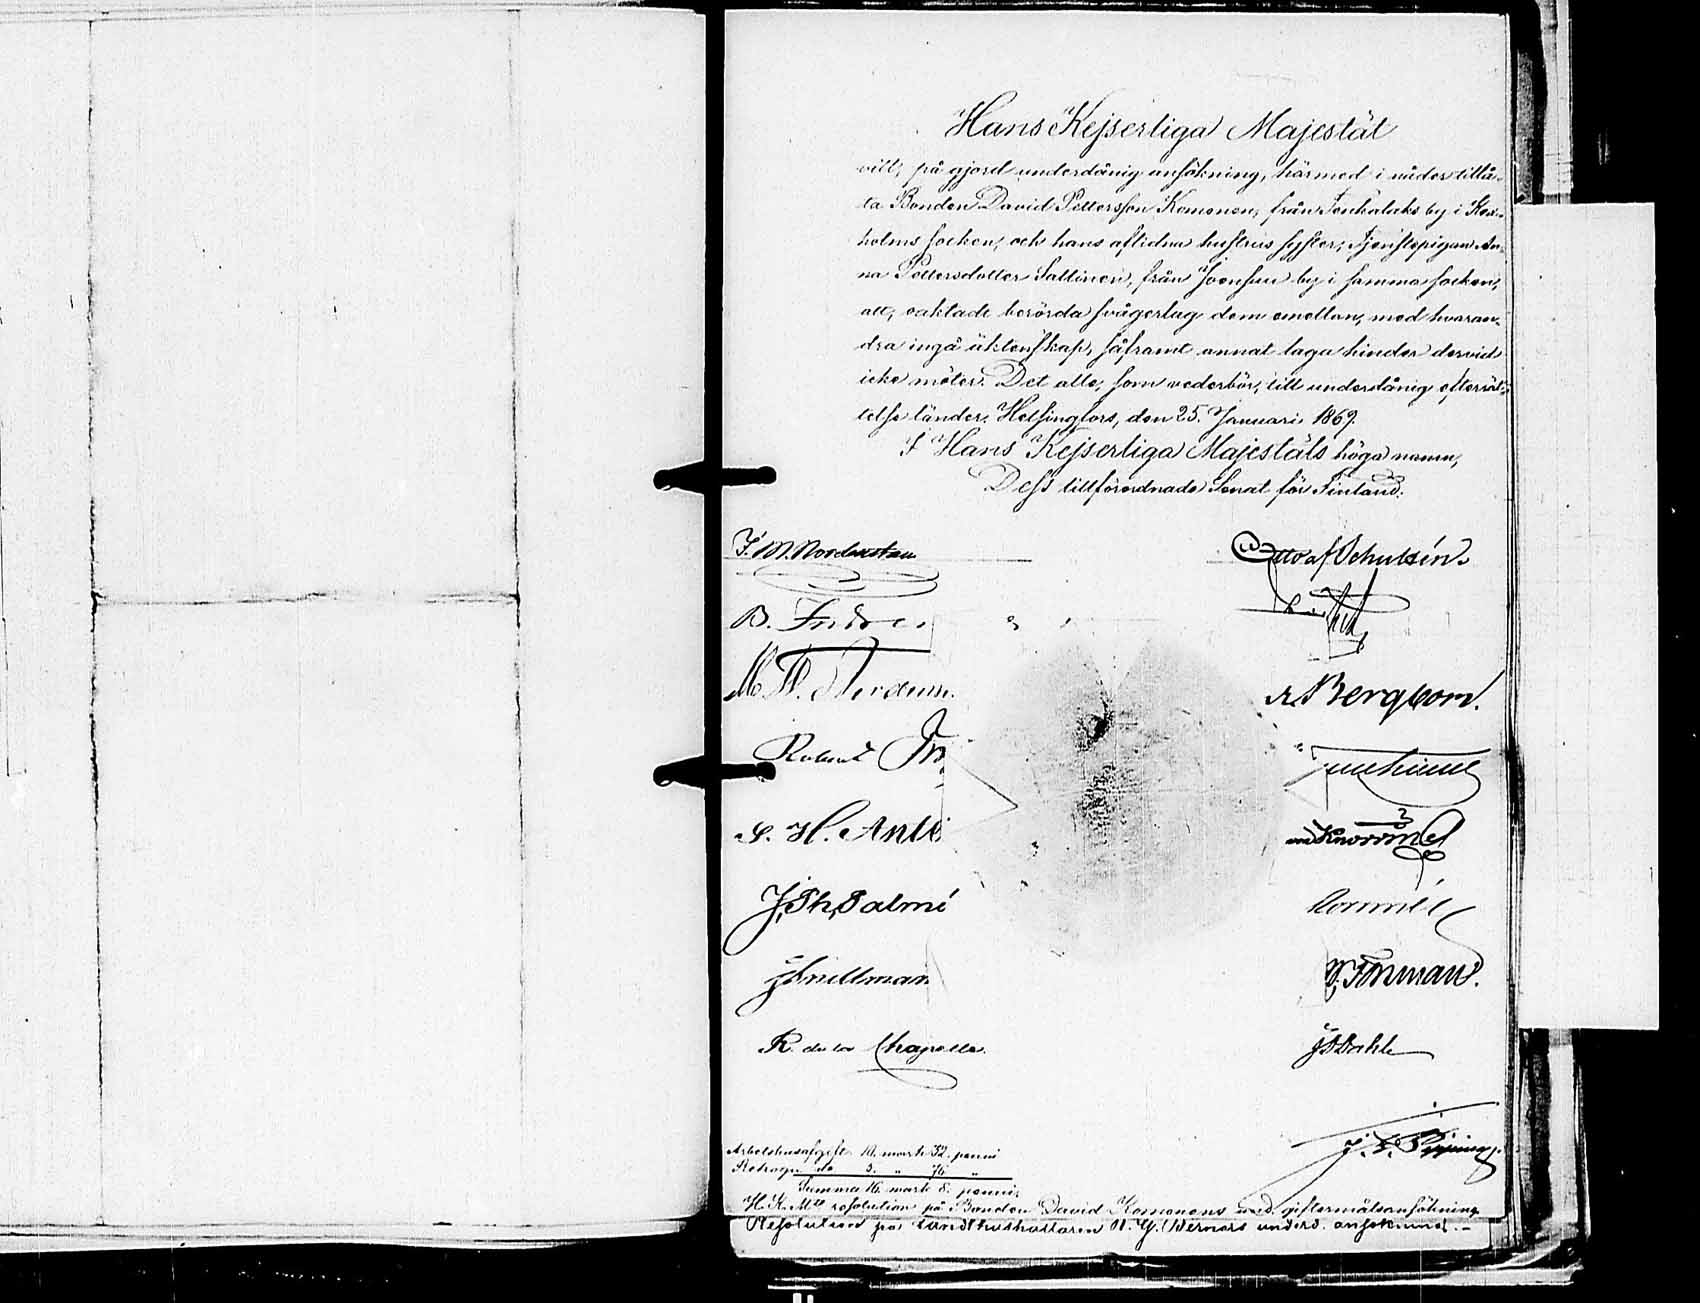 Hans Kejserliga Majestät
vill, på gjord underdånig ansökning, härmed i nåder tillå-
ta Bonden David Pettersson Komonen, från by i Kex-
holms socken, och hans aflidna hustrus syster, Tjenstepigan An-
na Pettersdotter Sallinen, från Joensuu by i samma socken,
att, oaktadt berörda svågerlag dem emellan, med hvaran-
dra ingå äktenskap, såframt annat laga hinder dervid
icke möter. Det alle, som vederbör, till underdånig efterrät-
telse länder. Helsingfors, den 25. Januari 1869.
I Hans Kejserliga Majestäts höga namn,
Dess tillförordnade Senat för Finland.
J. M. Nordenstam
Otto af Schultén
B. Indre
R. Bergbom.
Robert
S. H. Antе
von Knorring
J. Ph. Palmé
JSnellman
V. Forsman.
R. de la Chapelle.
J. Dahl
Arbetshusafgift 10. mark 32. penni
Rekogn. do 5. " 76 "
Summa 16. mark 8. penni.
H. K. M:ts resolution på Bonden David Komonens und. giftermålsansökning
Resolution på underd. ansökning.